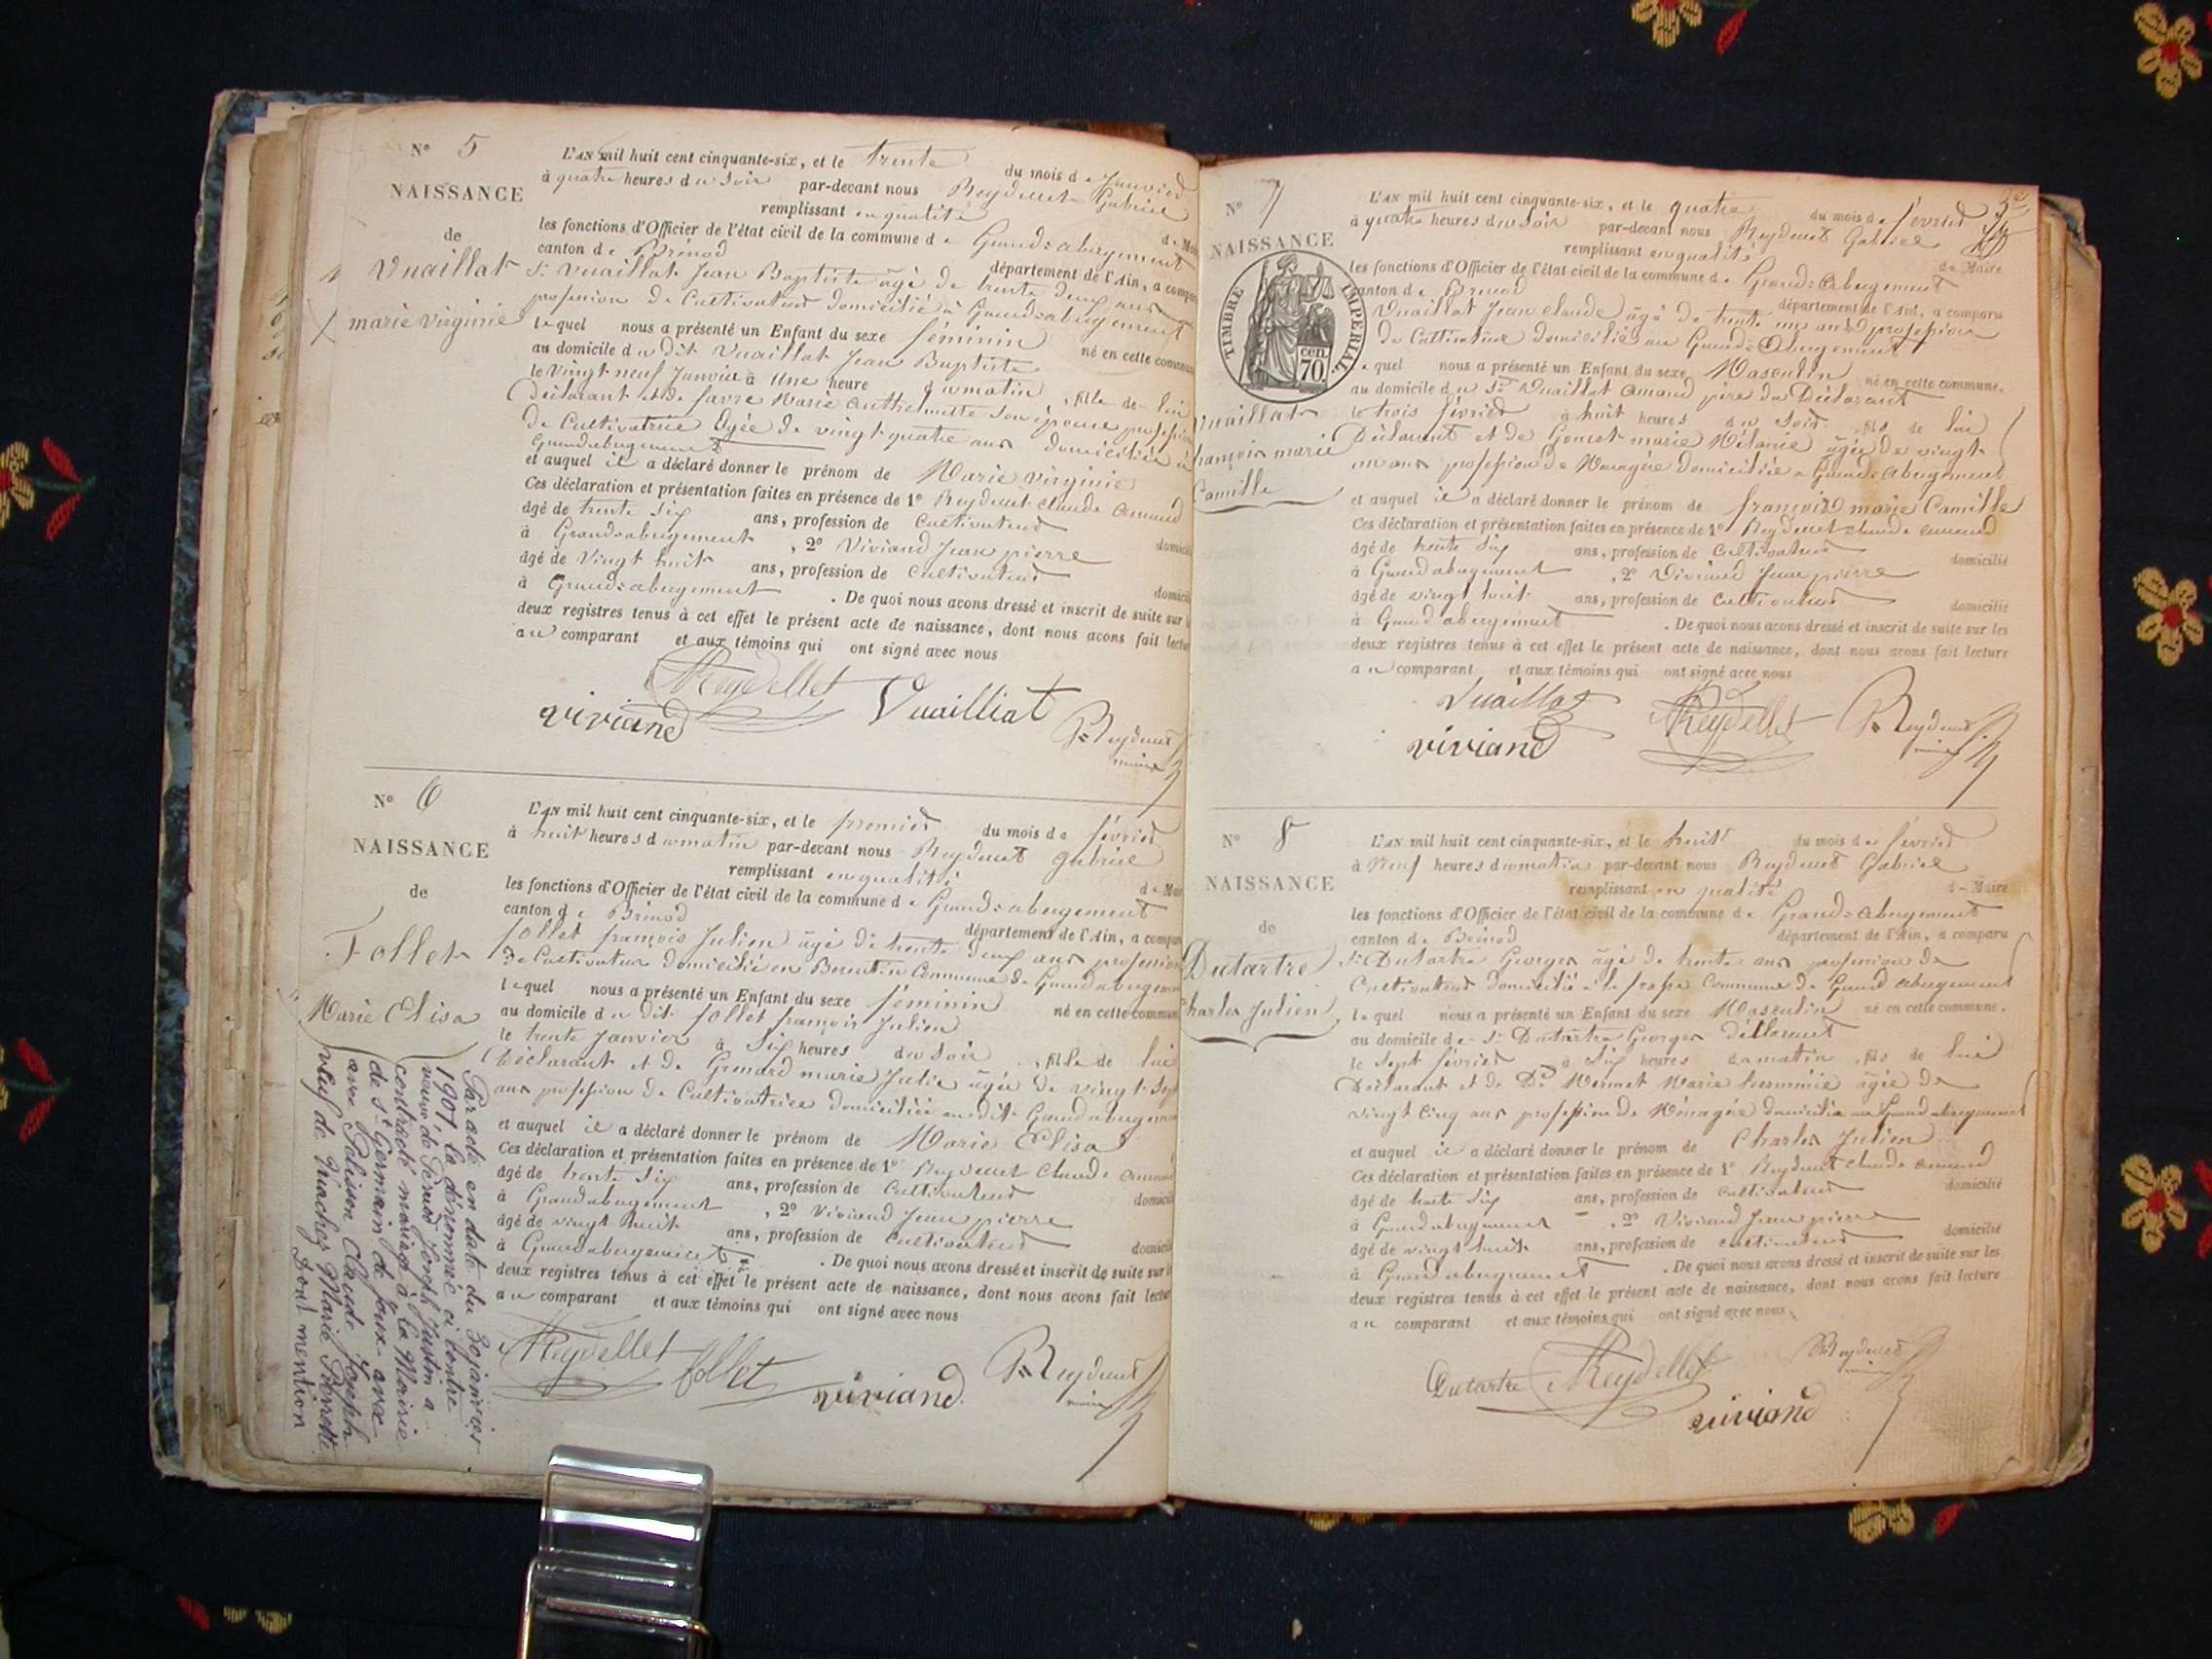 N° 5
NAISSANCE
de
Vuaillat
marie Virginie
L'AN mil huit cent cinquante-six, et le trente du mois de Janvier
à quatre heures du soir par-devant nous Reydellet Gabriel
remplissant en qualité de Maire
les fonctions d'Officier de l'état civil de la commune de Grand=abergement
canton de Brénod département de l'Ain, a comparu
Sr Vuaillat Jean Baptiste âgé de trente deux ans
profession de Cultivateur domicilié à Grand=abergement
lequel nous a présenté un Enfant du sexe féminin né en cette commune
au domicile du dit Vuaillat Jean Baptiste
le vingt neuf Janvier à Une heure du matin, fille de lui
Déclarant et de favre Marie Anthelmette son épouse profession
de Cultivatrice âgée de vingt quatre ans domiciliée à
Grandabergement
et auquel il a déclaré donner le prénom de Marie Virginie
Ces déclaration et présentation faites en présence de 1° Reydellet Claude Amand
âgé de trente six ans, profession de Cultivateur domicilié
à Grand=abergement, 2° Viviand Jean pierre
âgé de Vingt huit ans, profession de Cultivateur domicilié
à Grand=abergement. De quoi nous avons dressé et inscrit de suite sur les
deux registres tenus à cet effet le présent acte de naissance, dont nous avons fait lecture
au comparant et aux témoins qui ont signé avec nous
Reydellet Vuailliat
viviand Reydellet
maire
N° 6
NAISSANCE
de
Follet
Marie Elisa
L'AN mil huit cent cinquante-six, et le premier du mois de février
à huit heures du matin par-devant nous Reydellet gabriel
remplissant en qualité de Maire
les fonctions d'Officier de l'état civil de la commune de Grand=abergement
canton de Brénod département de l'Ain, a comparu
follet françois Julien âgé de trente deux ans profession
de Cultivateur domicilié en Berentin Commune de Grandabergement
lequel nous a présenté un Enfant du sexe féminin né en cette commune
au domicile du dit follet françois Julien
le trente Janvier à Six heures du soir, fille de lui
Déclarant et de Grenard marie Julie âgée de vingt Sept
ans profession de Cultivatrice domiciliée au dit Grandabergement
et auquel il a déclaré donner le prénom de Marie Elisa
Ces déclaration et présentation faites en présence de 1° Reydellet Claude Amand
âgé de trente six ans, profession de Cultivateur domicilié
à Grandabergement, 2° Viviand Jean pierre
âgé de vingt huit ans, profession de Cultivateur domicilié
à Grandabergement. De quoi nous avons dressé et inscrit de suite sur les
deux registres tenus à cet effet le présent acte de naissance, dont nous avons fait lecture
au comparant et aux témoins qui ont signé avec nous
Reydellet follet viviand Reydellet
maire
Par acte en date du 30 janvier
1901, la dénommée ci contre
veuve de Joseph Justin a
contracté mariage à la Mairie
de St Germain de Joux avec
avec Pelisson Claude Joseph
veuf de Machet Marie Pierrette
Dont mention
N° 7
NAISSANCE
TIMBRE IMPERIAL
cen. 70
Vuaillat
françois marie
Camille
L'AN mil huit cent cinquante-six, et le quatre du mois de février
à quatre heures du soir par-devant nous Reydellet Gabriel
remplissant en qualité de Maire
les fonctions d'Officier de l'état civil de la commune de Grand=Abergement
canton de Brénod département de l'Ain, a comparu
Vuaillat Jean claude âgé de trente un ans profession
de Cultivateur domicilié au Grand=Abergement
lequel nous a présenté un Enfant du sexe Masculin né en cette commune.
au domicile du Sr Vuaillat Amand père du Déclarant
le trois février à huit heures du soir, fils de lui
Déclarant et de marie Mélanie âgée de vingt
un ans profession de Menagère domiciliée à Grand=Abergement
et auquel il a déclaré donner le prénom de françois marie Camille
Ces déclaration et présentation faites en présence de 1° Reydellet claude amand
âgé de trente six ans, profession de Cultivateur domicilié
à Grandabergement, 2° Viviand Jean pierre
âgé de vingt huit ans, profession de Cultivateur domicilié
à Grandabergement. De quoi nous avons dressé et inscrit de suite sur les
deux registres tenus à cet effet le présent acte de naissance, dont nous avons fait lecture
au comparant et aux témoins qui ont signé avec nous
Vuaillat Reydellet Reydellet
viviand maire
N° 8
NAISSANCE
de
Dutartre
Charles Julien
L'AN mil huit cent cinquante-six, et le huit du mois de février
à Neuf heures du matin par-devant nous Reydellet Gabriel
remplissant en qualité de Maire
les fonctions d'Officier de l'état civil de la commune de Grand=Abergement
canton de Brénod département de l'Ain, a comparu
Sr Dutartre Georges âgé de trente ans profession de
Cultivateur domicilié à la Commune de Grand abergement
lequel nous a présenté un Enfant du sexe Masculin né en cette commune.
au domicile de Sr Dutartre Georges déclarant
le Sept février à Six heures du matin, fils de lui
Déclarant et de De Mermet Marie herminie âgée de
vingt Cinq ans profession de Ménagère domiciliée au Grand abergement
et auquel il a déclaré donner le prénom de Charles Julien
Ces déclaration et présentation faites en présence de 1° Reydellet claude amand
âgé de trente Six ans, profession de Cultivateur domicilié
à Grandabergement, 2° Viviand Jean pierre
âgé de vingt huit ans, profession de cultivateur domicilié
à Grand abergement. De quoi nous avons dressé et inscrit de suite sur les
deux registres tenus à cet effet le présent acte de naissance, dont nous avons fait lecture
au comparant et aux témoins qui ont signé avec nous
Dutartre Reydellet Reydellet
viviand maire